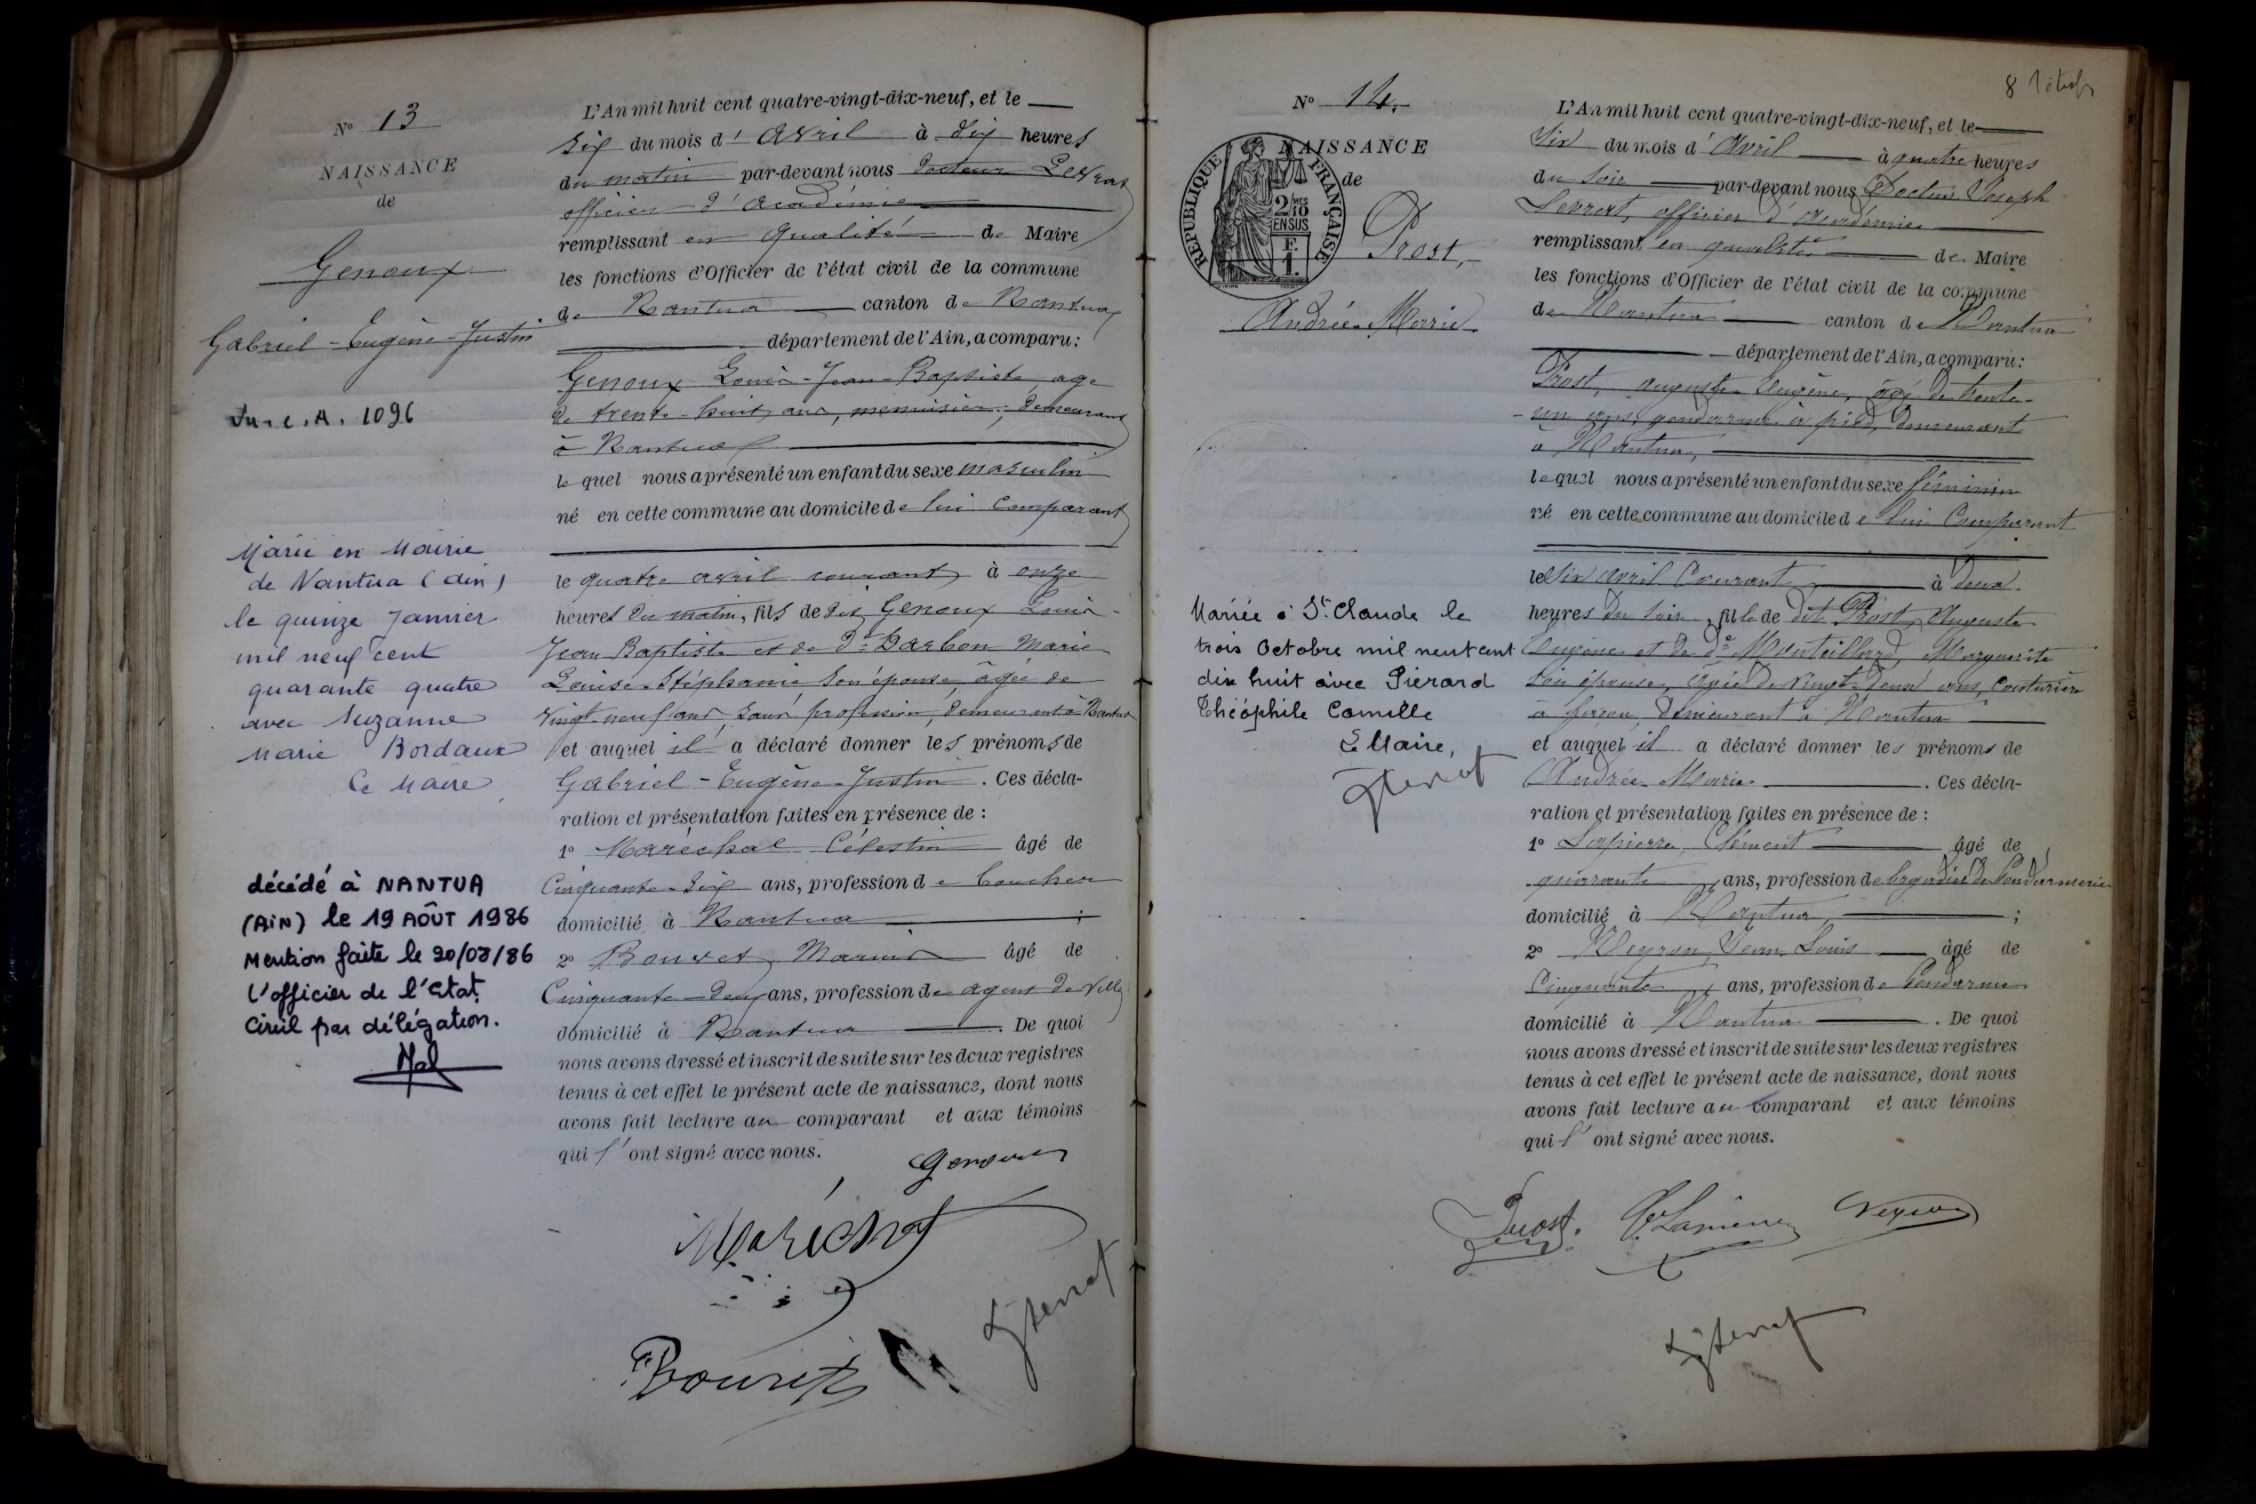 N° 13
NAISSANCE
de
Genoux
Gabriel-Eugène-Justin
1096
Marié en Mairie
de Nantua (ain)
le quinze Janvier
mil neuf cent
quarante quatre
avec Suzanne
Marie Bordaux
Le Maire
décédé à NANTUA
(AiN) le 19 AOÛT 1986
Mention faite le 20/08/86
L'officier de l'etat
Civil par délégation.
L'An mil huit cent quatre-vingt-dix-neuf, et le
six du mois d'Avril à dix heures
du matin par-devant nous Docteur Levrat
officier d'académie
remplissant en qualité de Maire
les fonctions d'Officier de l'état civil de la commune
de Nantua canton de Nantua
département de l'Ain, a comparu:
Genoux Louis-Jean-Baptiste, age
de trente-huit ans, menuisier, demeurant
à Nantua
lequel nous a présenté un enfant du sexe masculin
né en cette commune au domicile de lui comparant
le quatre avril courant à onze
heures du matin, fils de dit Genoux Louis-
Jean Baptiste et de De Barbon Marie
Louise Stéphanie son épouse, âgée de
vingt-neuf ans, sans profession, demeurant à Nantua
et auquel il a déclaré donner les prénoms de
Gabriel-Eugène-Justin. Ces décla-
ration et présentation faites en présence de :
1° Maréchal Célestin âgé de
Cinquante-six ans, profession de boucher
domicilié à Nantua ;
2° Bouvet, Marius âgé de
Cinquante-deux ans, profession de agent de Ville
domicilié à Nantua. De quoi
nous avons dressé et inscrit de suite sur les deux registres
tenus à cet effet le présent acte de naissance, dont nous
avons fait lecture au comparant et aux témoins
qui l'ont signé avec nous.
Genoux
Maréchal
Bouvet
8
N° 14.
NAISSANCE
de
RÉPUBLIQUE FRANÇAISE
2/10 EN SUS
F. 1.
Prost,
Andrée-Marie
Mariée à St. Claude le
trois Octobre mil neuf cent
dix huit avec Piérard
Théophile Camille
Le Maire,
L'An mil huit cent quatre-vingt-dix-neuf, et le
Six du mois d'Avril à quatre heures
du soir par-devant nous Docteur Joseph
Levrat, officier d'académie
remplissant en qualité de Maire
les fonctions d'Officier de l'état civil de la commune
de Nantua canton de Nantua
département de l'Ain, a comparu:
Prost, Auguste Eugène, âgé de trente-
un ans, gendarme à pied, demeurant
à Nantua,
lequel nous a présenté un enfant du sexe féminin
né en cette commune au domicile de lui Comparant
le Six Avril Courant à deux
heures du soir, fille de dit Prost, Auguste
Eugène et de De Monteillard, Marguerite
son épouse, âgée de vingt-deux ans, Couturière
à façon, demeurant à Nantua
et auquel il a déclaré donner les prénoms de
Andrée Marie. Ces décla-
ration et présentation faites en présence de :
1° Lapierre, Clément âgé de
quarante ans, profession de brigadier de Gendarmerie
domicilié à Nantua, ;
2° Neyron, Jean Louis âgé de
Cinquante ans, profession de Gendarme
domicilié à Nantua. De quoi
nous avons dressé et inscrit de suite sur les deux registres
tenus à cet effet le présent acte de naissance, dont nous
avons fait lecture au comparant et aux témoins
qui l'ont signé avec nous.
Prost. C. Lapierre Neyron